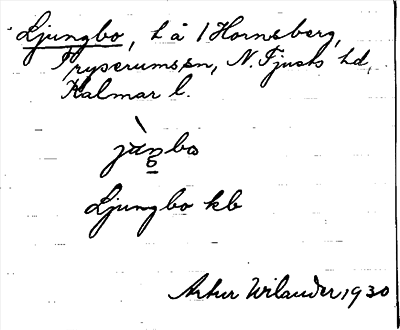 Ljungbo, h å 1 Hornsberg,
Tryserums sn, N. Tjusts hd,
Kalmar l.
jùŋbo
Ljungbo kb
Artur Wilander 1930